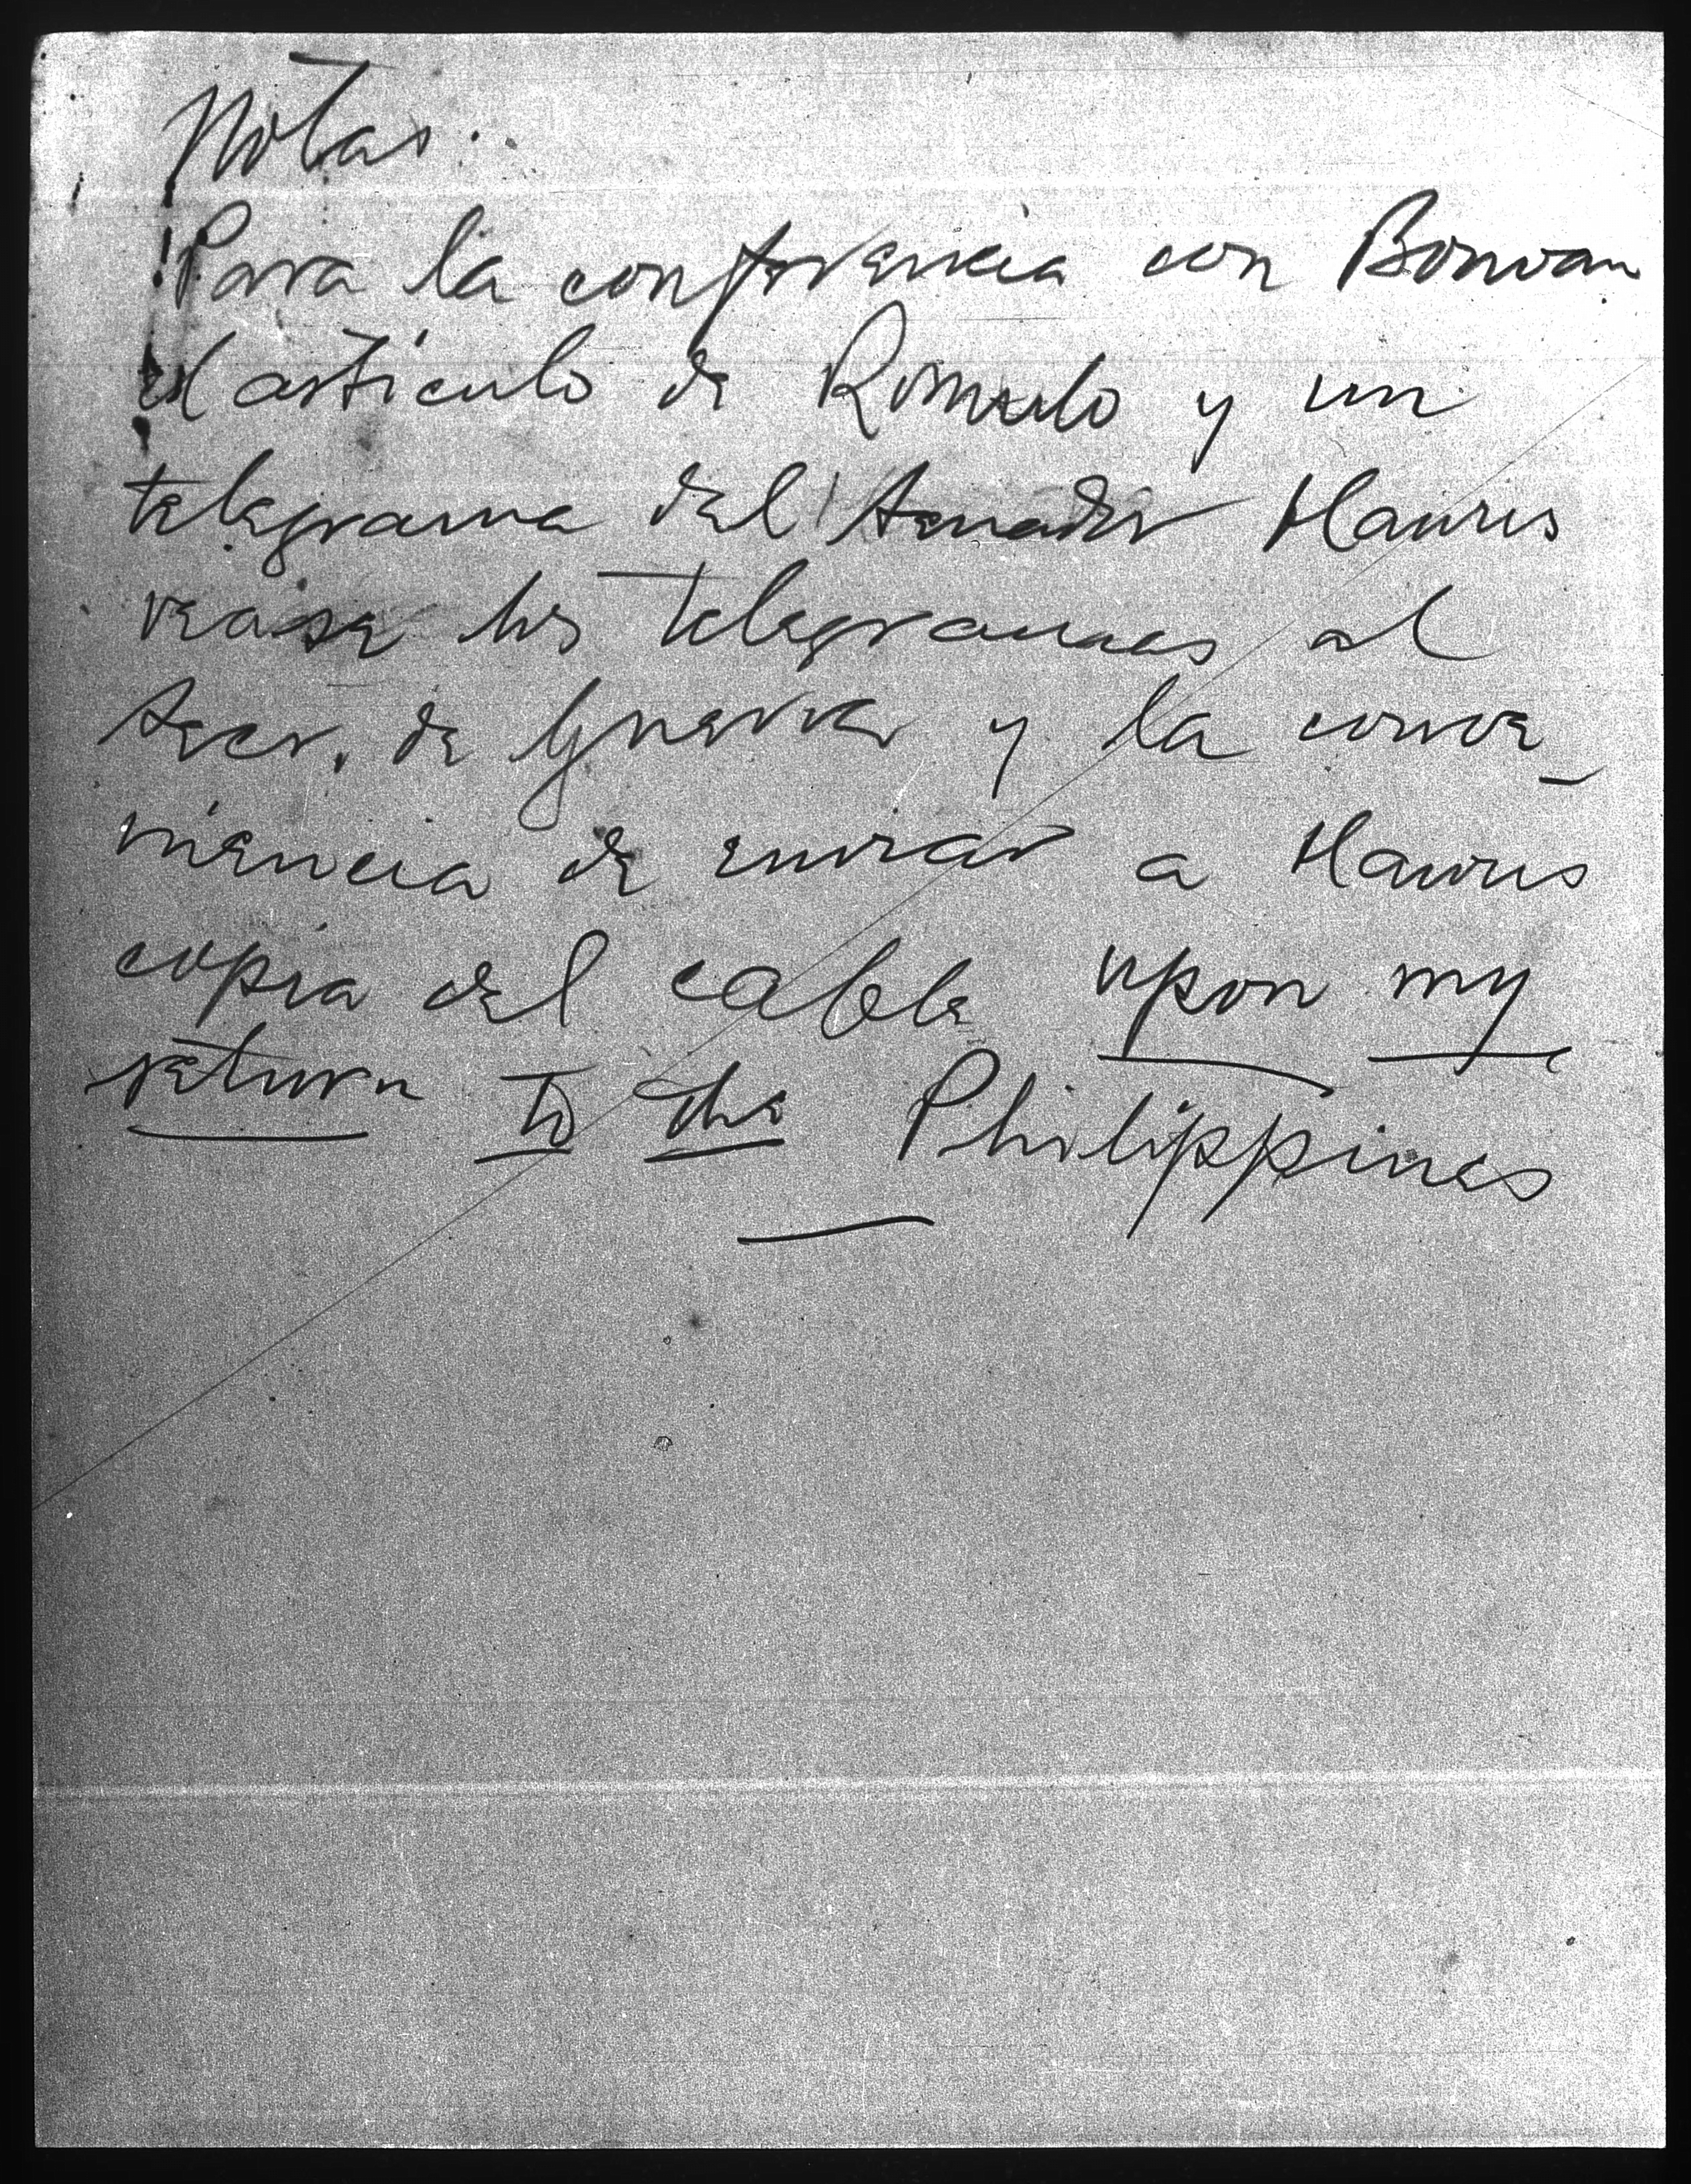 Notas:
Para la conferencia con Bonoan
el artículo de Romulo y un
telegrama del Senador Hawes
vease los telegramas al
Secr. de Guerra y la conve-
niencia de enviar a Hawes
copia del cable upon my
return to the Philippines